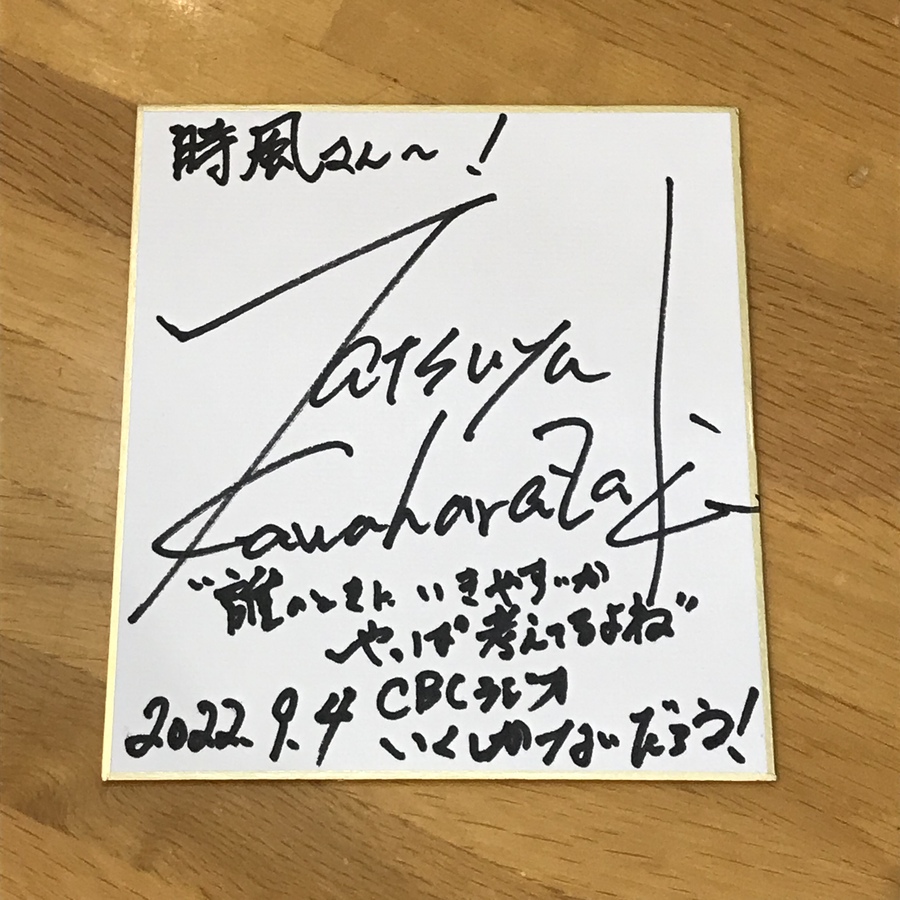 時風さん〜!
Tatsuya
Kawaharazaki
"誰のときに いきやすいか
やっぱ考えてるよね"
2022.9.4 CBCラジオ
いくしかないだろう!